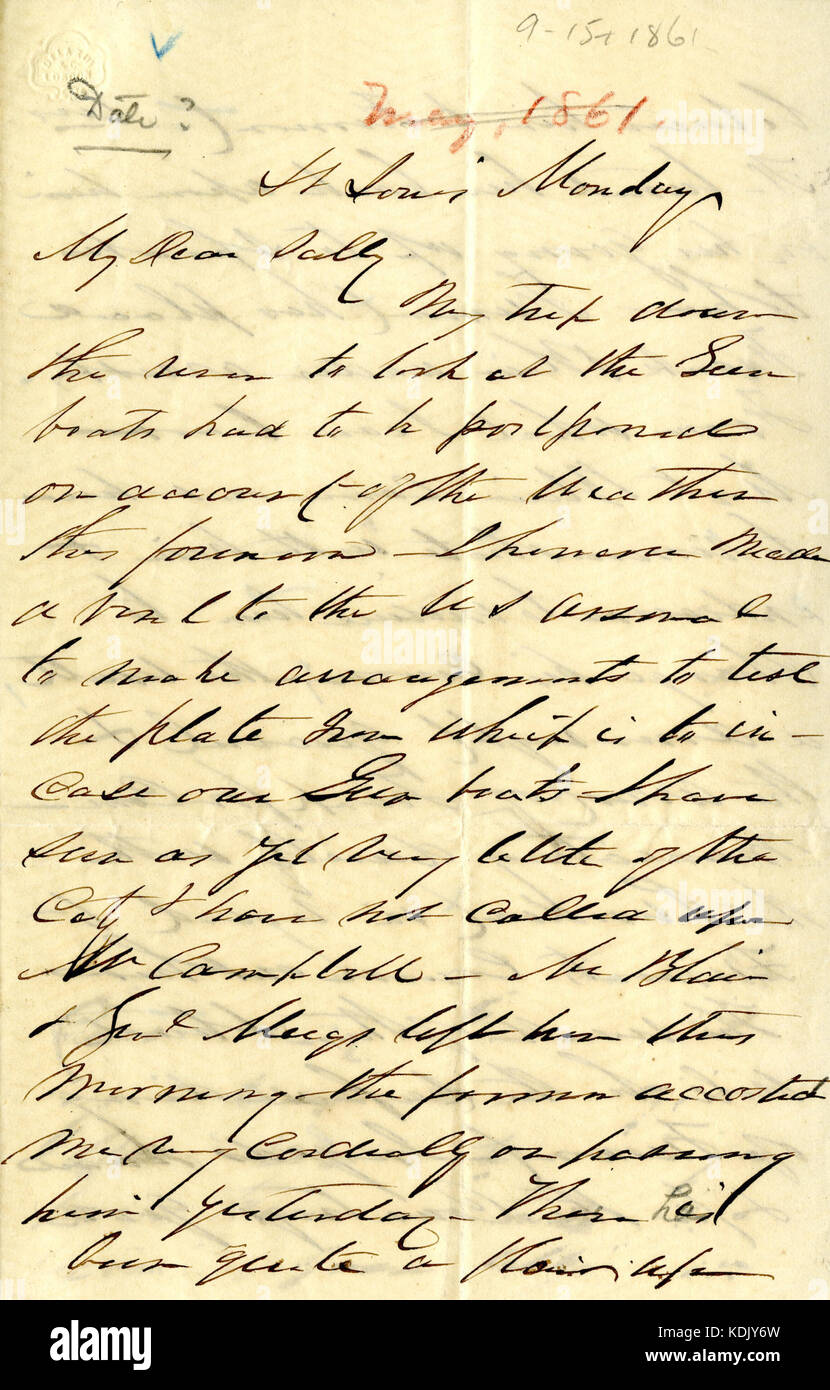 9-15+1861
Date?
May, 1861.
St Louis Monday
My Dear Sally.
My trip down
the river to look at the Gun
boats had to be postponed
on account of the Weather
this forenoon – I however Made
a visit to the U S Arsenal
to make arrangements to test
the plate Iron which is to in-
Case our Gun boats – I have
seen as yet very little of the
City & have not Called upon
Mr Campbell – Mr Blair
& Genl Meigs left here this
Morning – the former accosted
me very Cordially on passing
him yesterday – There has
been quite a flare up
alamy
Image ID: KDJY6W
www.alamy.com